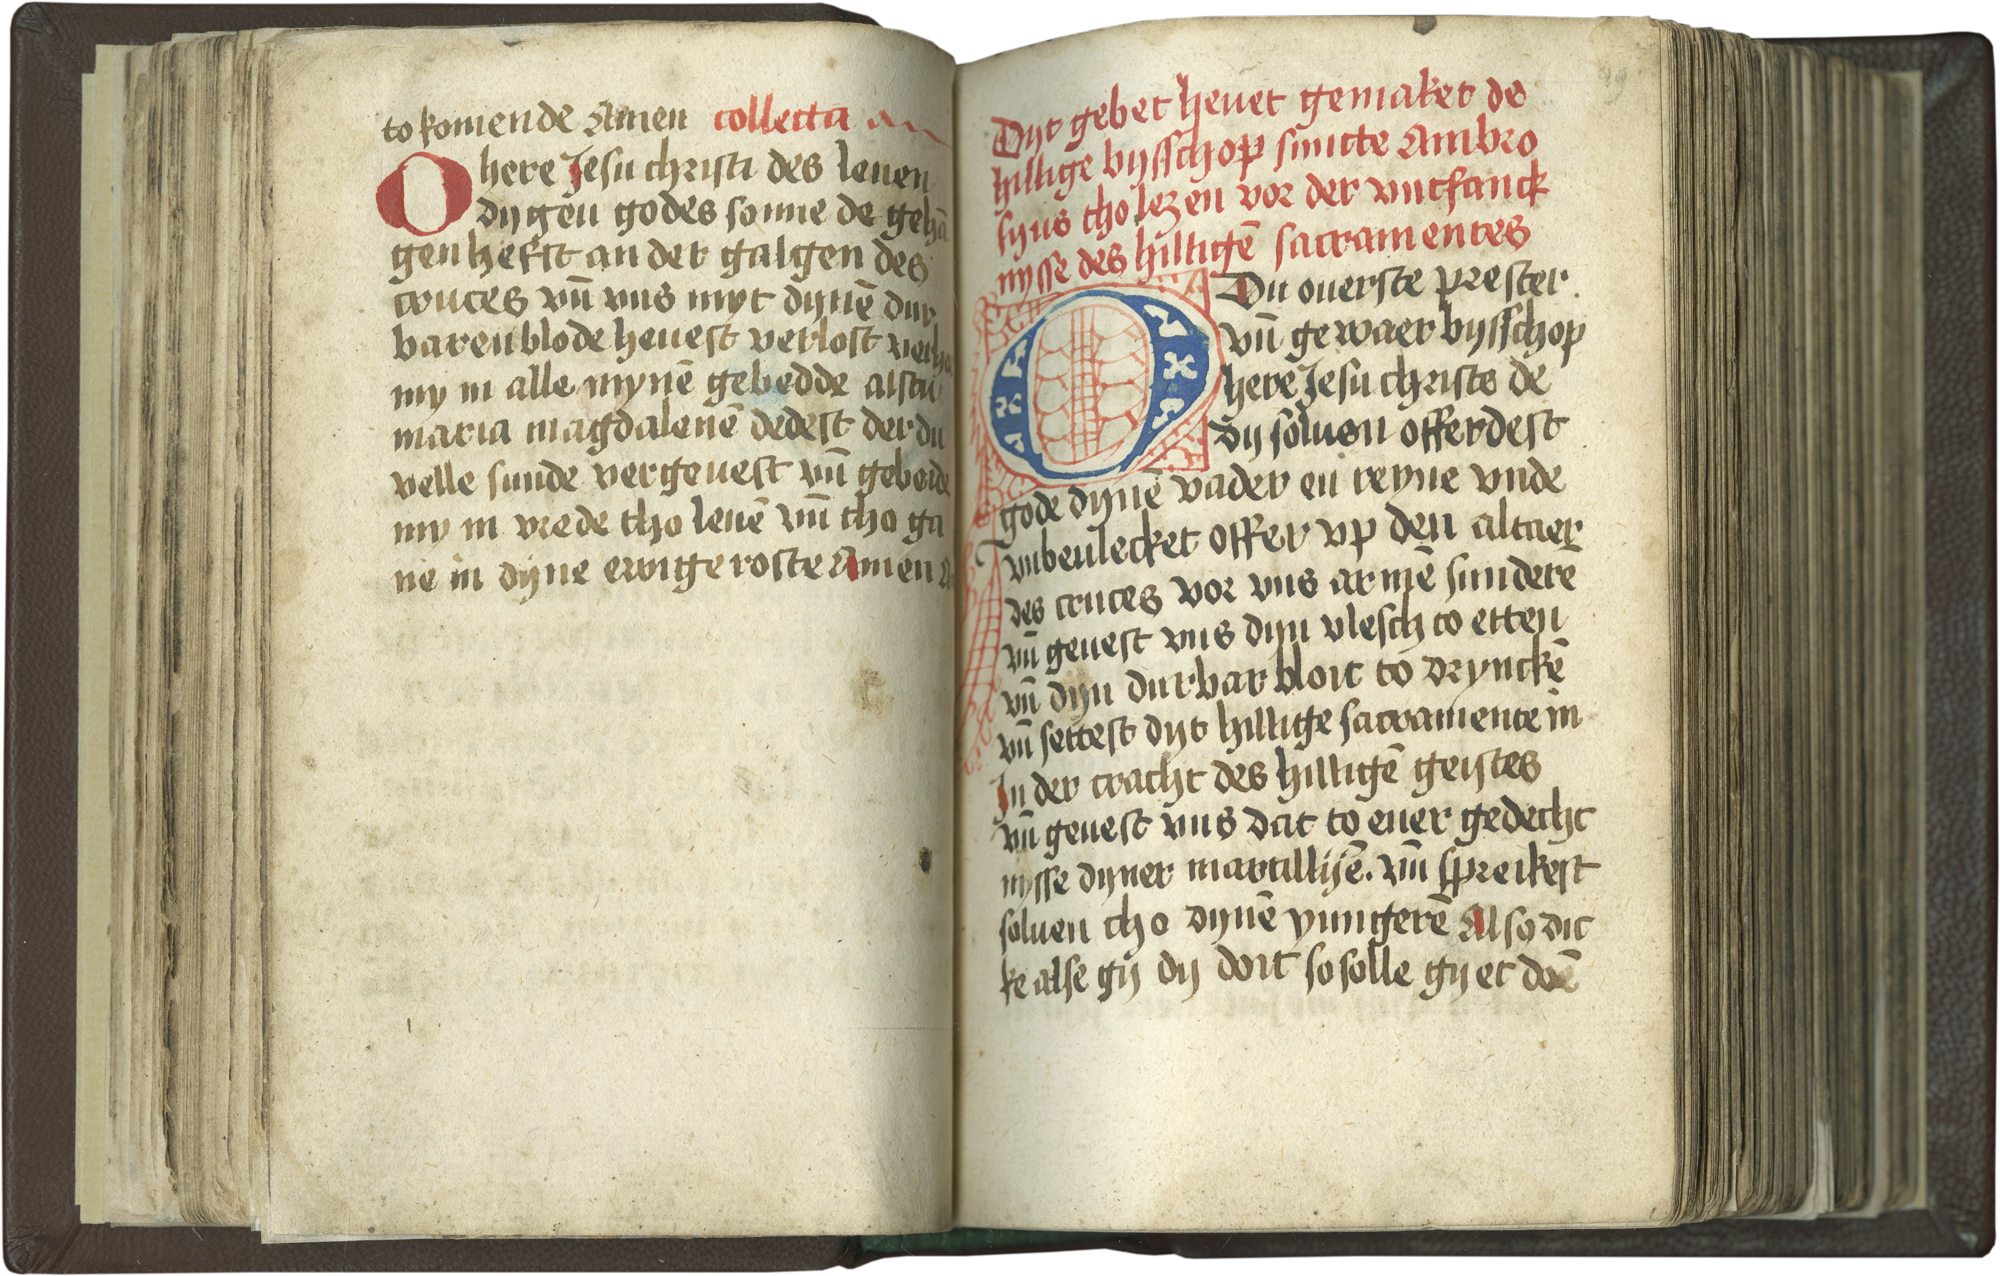 to komende Amen collecta
O here Jesu christi des leuen
dijgen godes sonne de gehā
gen hefst an der galgen des
cruces vn̄ vns myt dynē dur
baren blode heuest verlost
my in alle mynē gebedde alstu
maria magdalenē dedest der du
velle sunde vergeuest vn̄ gebeide
my in vrede tho leuē vn̄ tho ga
ne in dyne ewige roste Amen
49
Dyt gebet heuet gemaket de
hillige bysschop suncte Ambro
sijus tho lezen vor der vntfanck
nysse des hilligē sacramentes
O Du ouerste prester
vn̄ gewaer bysschop
here Jesu christe de
dy soluen offerdest
gode dynē vader en reyne vnde
vnbeulecket offer vp den altaer
des cruces vor vns armē sunderē
vn̄ geuest vns dyn vlesch to etten
vn̄ dyn durbar bloit to drynckē
vn̄ settest dyt hillige sacramente in
In der cracht des hilligē geistes
vn̄ geuest vns dat to ener gedecht
nysse dyner martillijē. vn̄ spreikest
soluen tho dynē yungerē Also dic
ke alse gy dy doit so solle gy et doē